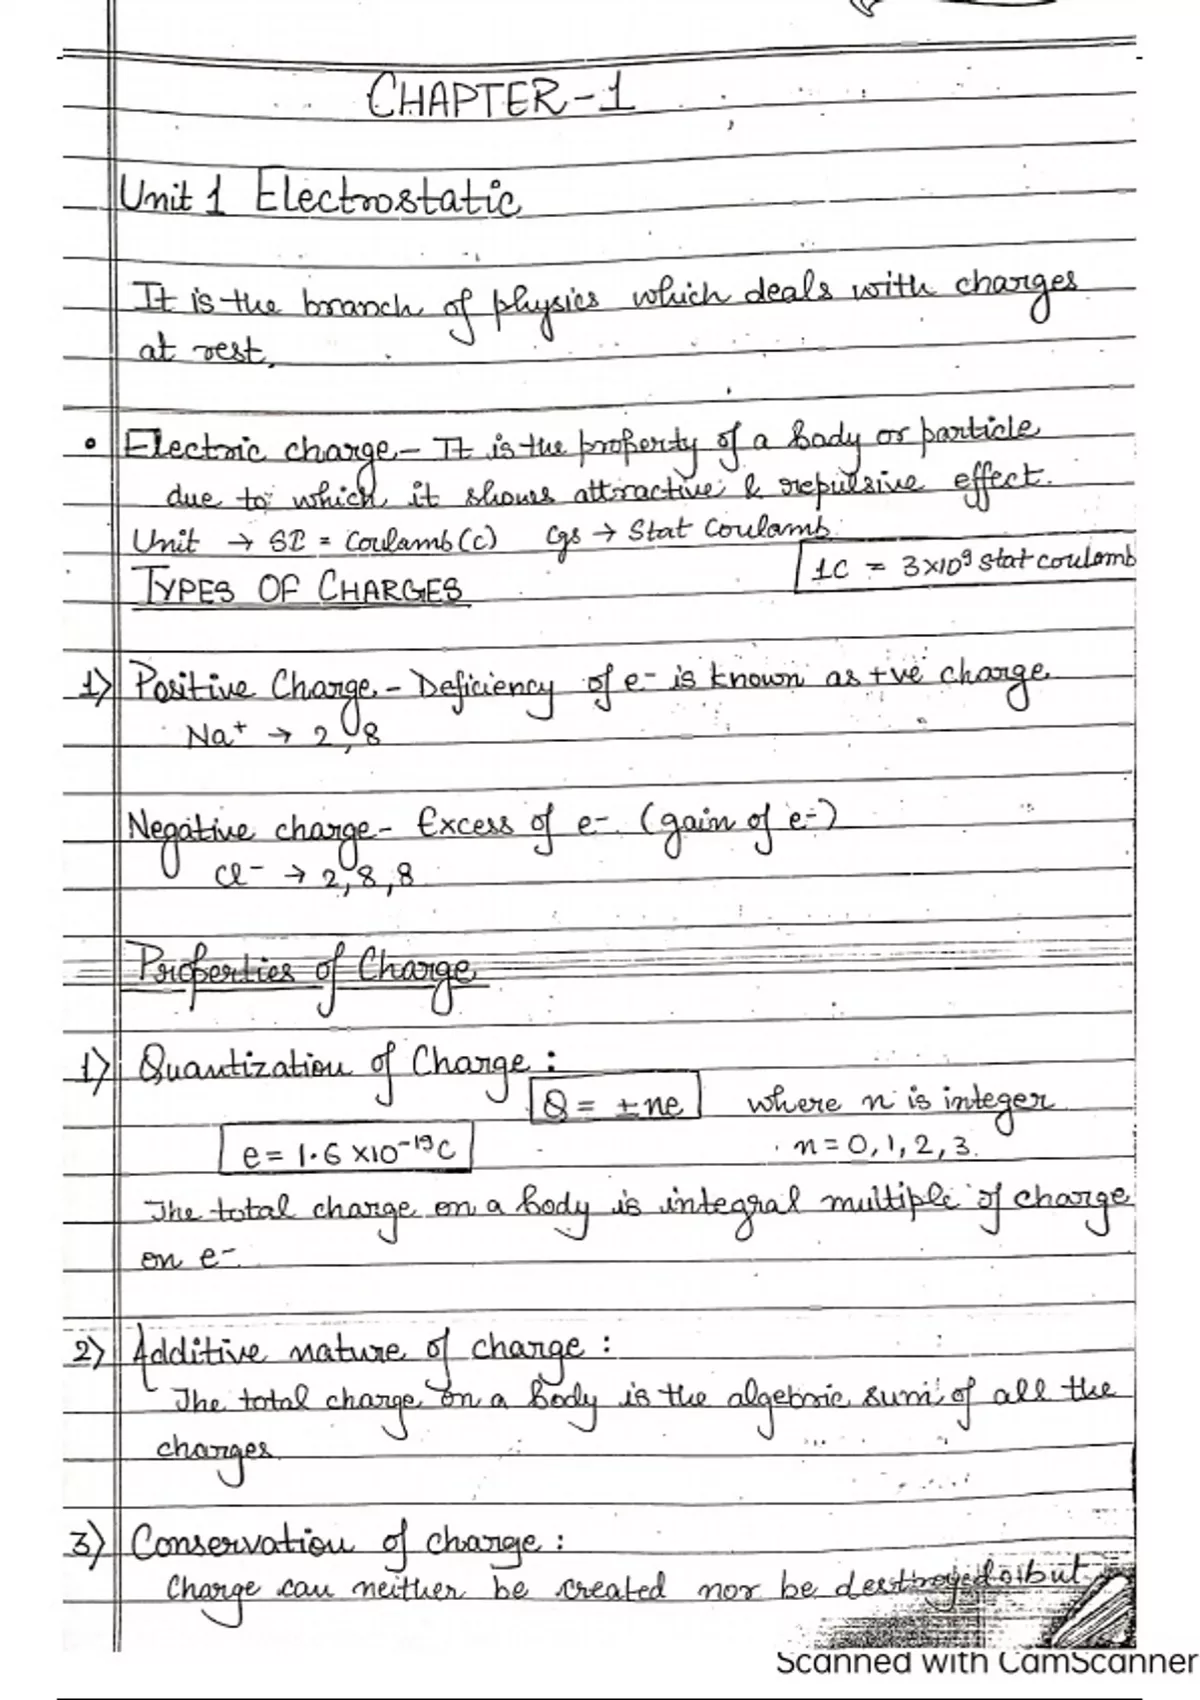 CHAPTER-1
Unit 1 Electrostatic
It is the branch of physics which deals with charges
at rest.
• Electric charge - It is the property of a body or particle
due to which it shows attractive & repulsive effect.
Unit → SI = Coulamb (c) Cgs → Stat Coulamb
1C = 3×10⁹ stat coulomb
TYPES OF CHARGES
1) Positive Charge - Deficiency of e- is known as +ve charge
Na⁺ → 2,8
Negative charge - Excess of e-. (gain of e-)
Cl⁻ → 2,8,8
Properties of Charge
1) Quantization of Charge :
Q = ±ne where n is integer
e = 1.6 ×10⁻¹⁹C n = 0, 1, 2, 3.
The total charge on a body is integral multiple of charge
on e-.
2) Additive nature of charge :
The total charge on a body is the algebric sum of all the
charges
3) Conservation of charge :
Charge can neither be created nor be destroyed but
Scanned with CamScanner